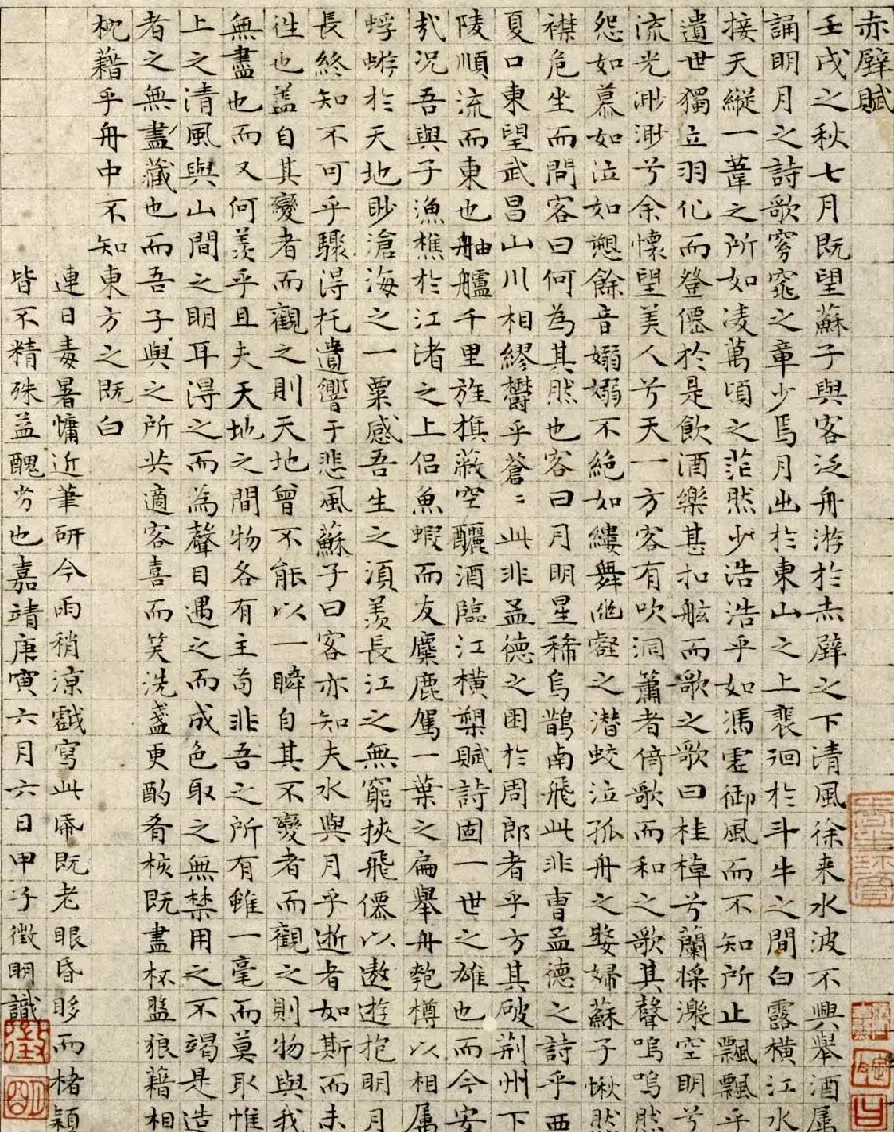 赤壁賦
壬戌之秋七月既望蘇子與客泛舟游於赤壁之下清風徐来水波不興舉酒属
誦明月之詩歌窈窕之章少焉月出於東山之上裴徊於斗牛之間白露横江水
接天縱一葦之所如凌萬頃之茫然少浩浩乎如馮虚御風而不知所止飄飄乎
遺世獨立羽化而登僊於是飲酒樂甚扣舷而歌之歌曰桂棹兮蘭槳激空明兮
流光渺渺兮余懷望美人兮天一方客有吹洞簫者倚歌而和之歌其聲嗚嗚然
怨如慕如泣如愬餘音嫋嫋不絶如縷舞幽壑之潜蛟泣孤舟之嫠婦蘇子愀然
襟危坐而問客曰何為其然也客曰月明星稀烏鵲南飛此非曹孟德之詩乎西
夏口東望武昌山川相繆鬱乎蒼〻此非孟德之困於周郎者乎方其破荆州下
陵順流而東也舳艫千里旌旗蔽空釃酒臨江横槊賦詩固一世之雄也而今安
哉况吾與子漁樵於江渚之上侣魚蝦而友麋鹿駕一葉之扁舉舟匏樽以相属
蜉蝣於天地眇滄海之一粟感吾生之湏羡長江之無窮挾飛僊以遨遊抱明月
長終知不可乎驟得托遺響于悲風蘇子曰客亦知夫水與月乎逝者如斯而未
往也盖自其變者而觀之則天地曾不能以一瞬自其不變者而觀之則物與我
無盡也而又何羡乎且夫天地之間物各有主苟非吾之所有雖一毫而莫取惟
上之清風與山間之明耳得之而為聲目遇之而成色取之無禁用之不竭是造
者之無盡藏也而吾子與之所共適客喜而笑洗盞更酌肴核既盡杯盤狼藉相
枕藉乎舟中不知東方之既白
連日毒暑慵近筆研今雨稍凉戲寫此帋既老眼昏眵而楮穎
皆不精殊益醜劣也嘉靖庚寅六月六日甲子徵明識
徵
明